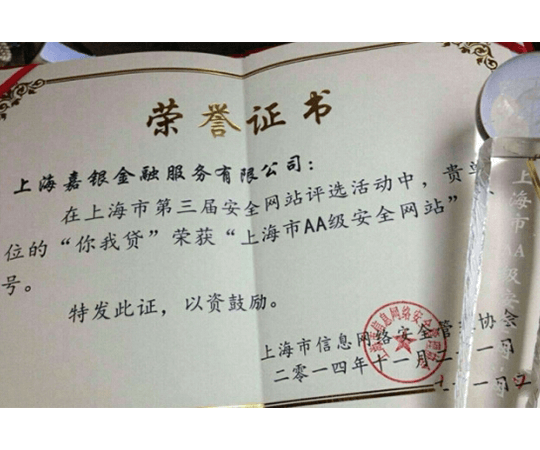 荣誉证书
上海嘉银金融服务有限公司：
在上海市第三届安全网站评选活动中，贵单
位的“你我贷”荣获“上海市AA级安全网站”
号。
特发此证，以资鼓励。
上海市信息网络安全管理协会
二零一四年十一月二十一日
上海市AA级安